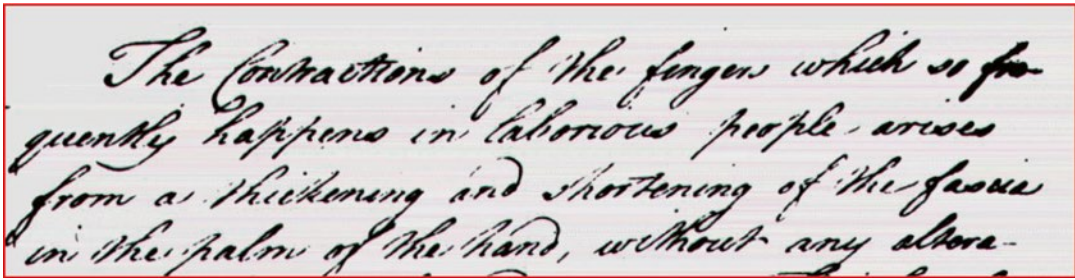 The Contractions of the fingers which so fre-
quently happens in laborious people arises
from a thickening and shortening of the fascia
in the palm of the hand, without any altera-